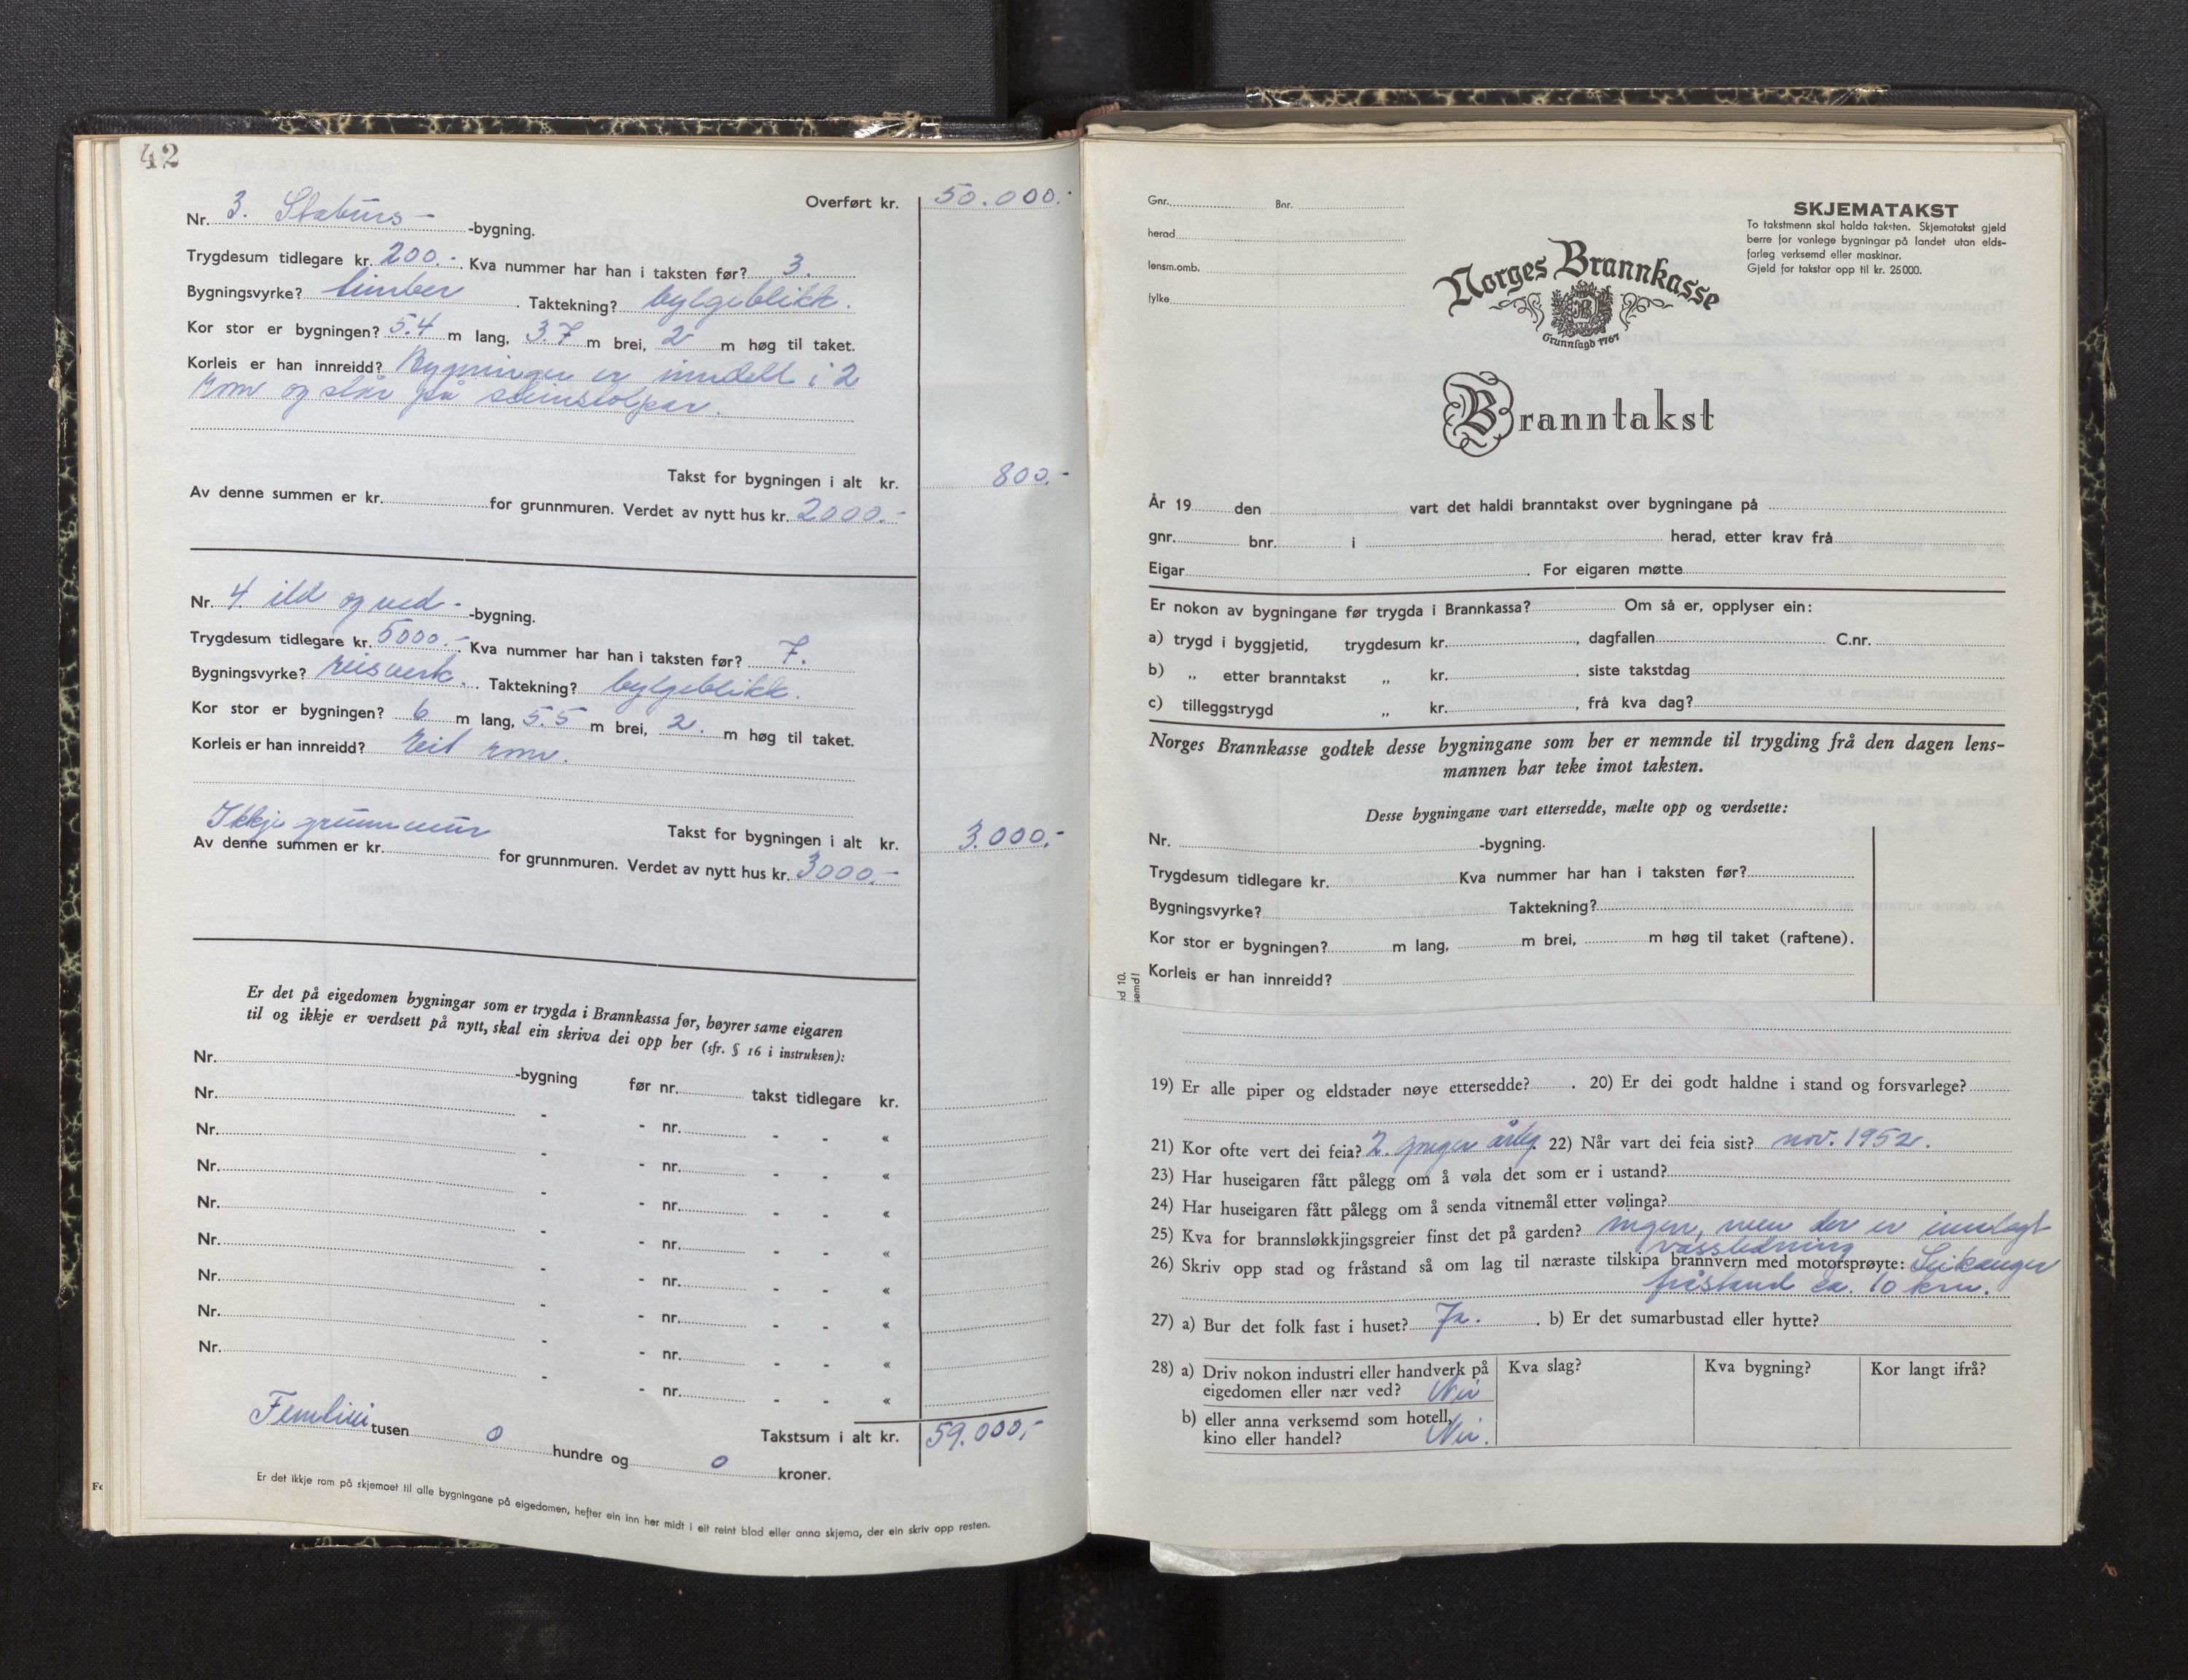 42
Overført kr. 50.000.-
Nr. 3. Staburs- -bygning.
Trygdesum tidlegare kr. 200.- . Kva nummer har han i taksten før? 3.
Bygningsvyrke? timber . Taktekning? bylgeblikk.
Kor stor er bygningen? 5.4 m lang, 3.7 m brei, 2 m høg til taket.
Korleis er han innreidd? Bygningen er inndelt i 2
rom og står på steinstolpar.
Takst for bygningen i alt kr. 800.-
Av denne summen er kr. for grunnmuren. Verdet av nytt hus kr. 2000.-
Nr. 4. ild og ved- -bygning.
Trygdesum tidlegare kr. 5000.- . Kva nummer har han i taksten før? 7.
Bygningsvyrke? reisverk. . Taktekning? bylgeblikk.
Kor stor er bygningen? 6 m lang, 5.5 m brei, 2. m høg til taket.
Korleis er han innreidd? Eit rom.
Ikkje grunnmur
Takst for bygningen i alt kr. 3.000.-
Av denne summen er kr. for grunnmuren. Verdet av nytt hus kr. 3000.-
Er det på eigedomen bygningar som er trygda i Brannkassa før, høyrer same eigaren
til og ikkje er verdsett på nytt, skal ein skriva dei opp her (sfr. § 16 i instruksen):
Nr. -bygning før nr. takst tidlegare kr.
Nr. - - nr. - - «
Nr. - - nr. - - «
Nr. - - nr. - - «
Nr. - - nr. - - «
Nr. - - nr. - - «
Nr. - - nr. - - «
Nr. - - nr. - - «
Nr. - - nr. - - «
Takstsum i alt kr. 59.000,-
tusen 0 hundre og 0 kroner.
Er det ikkje rom på skjemaet til alle bygningane på eigedomen, hefter ein inn her midt i eit reint blad eller anna skjema, der ein skriv opp resten.
Gnr. Bnr.
herad
lensm.omb.
fylke
Norges Brannkasse
Grunnlagd 1767
SKJEMATAKST
To takstmenn skal halda taksten. Skjematakst gjeld
berre for vanlege bygningar på landet utan elds-
farleg verksemd eller maskinar.
Gjeld for takstar opp til kr. 25000.
Branntakst
År 19 den vart det haldi branntakst over bygningane på
gnr. bnr. i herad, etter krav frå
Eigar . For eigaren møtte
Er nokon av bygningane før trygda i Brannkassa? Om så er, opplyser ein:
a) trygd i byggjetid, trygdesum kr. , dagfallen C.nr.
b) „ etter branntakst „ kr. , siste takstdag
c) tilleggstrygd „ kr. , frå kva dag?
Norges Brannkasse godtek desse bygningane som her er nemnde til trygding frå den dagen lens-
mannen har teke imot taksten.
Desse bygningane vart ettersedde, mælte opp og verdsette:
Nr. -bygning.
Trygdesum tidlegare kr. Kva nummer har han i taksten før?
Bygningsvyrke? Taktekning?
Kor stor er bygningen? m lang, m brei, m høg til taket (raftene).
Korleis er han innreidd?
19) Er alle piper og eldstader nøye ettersedde? . 20) Er dei godt haldne i stand og forsvarlege?
21) Kor ofte vert dei feia? 2. gongar årleg. 22) Når vart dei feia sist? nov. 1952.
23) Har huseigaren fått pålegg om å vøla det som er i ustand?
24) Har huseigaren fått pålegg om å senda vitnemål etter vølinga?
25) Kva for brannsløkkjingsgreier finst det på garden? ingen, men der er innlagt
vassledning
26) Skriv opp stad og fråstand så om lag til næraste tilskipa brannvern med motorsprøyte: Leikanger
fråstand ca. 10 km.
27) a) Bur det folk fast i huset? Ja. . b) Er det sumarbustad eller hytte?
28) a) Driv nokon industri eller handverk på
eigedomen eller nær ved? Nei
Kva slag? Kva bygning? Kor langt ifrå?
b) eller anna verksemd som hotell,
kino eller handel? Nei.